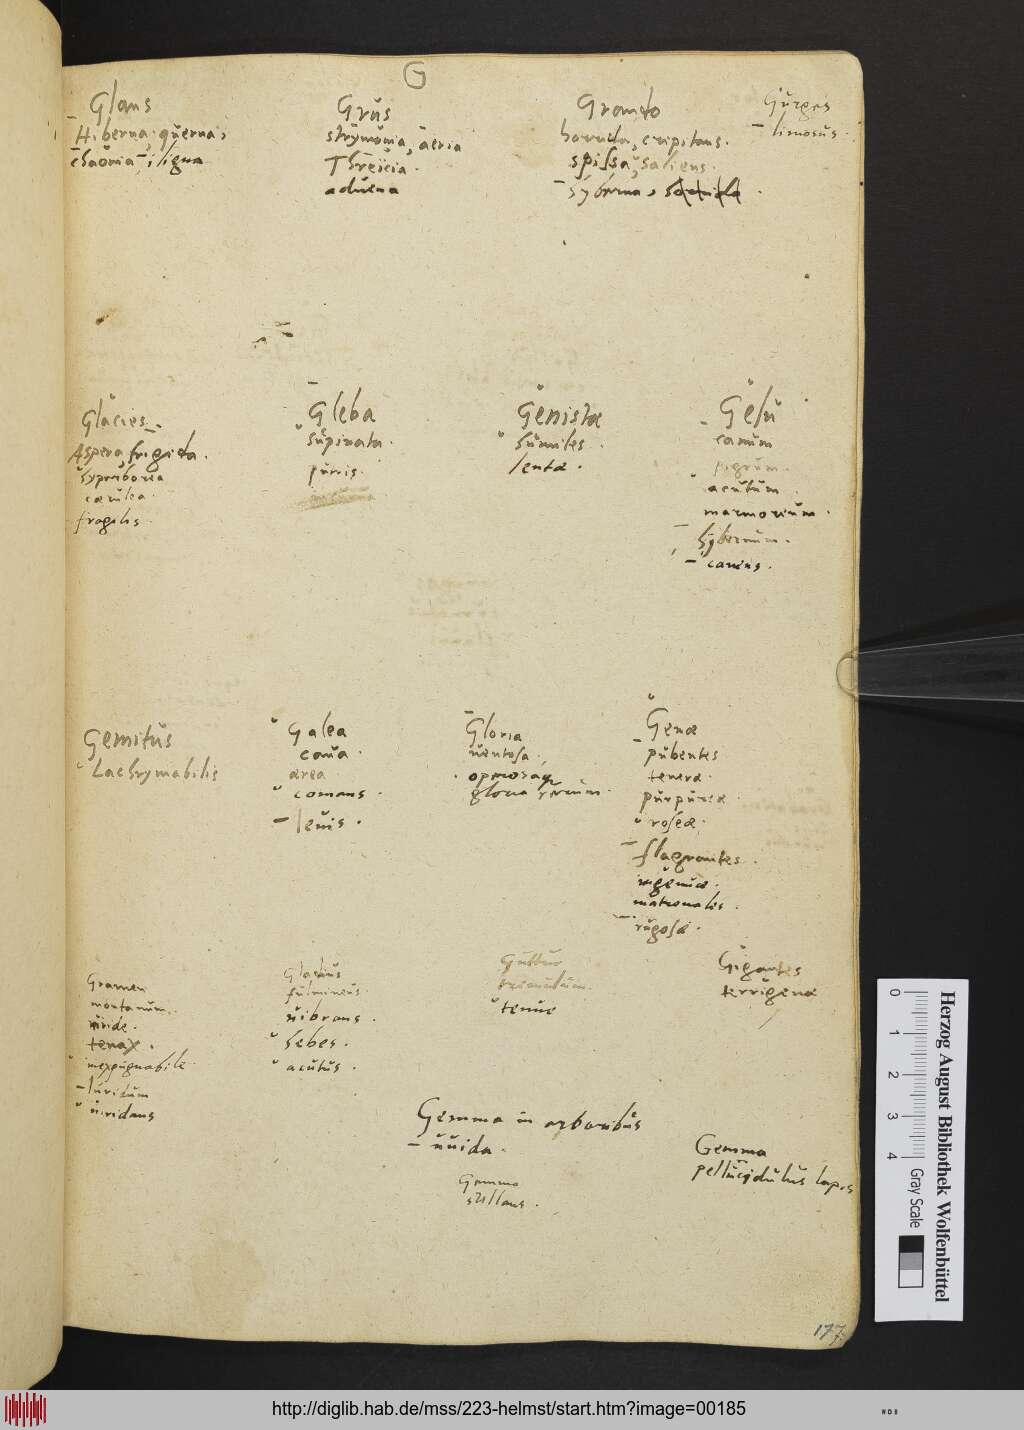 G
Glans
Hiberna, querna,
chaonia, iligna
Grus
strymonia, aeria
Threicia.
aduena
Grando
horrida, crepitans.
spissa, saliens.
hyberna,
Gurges
limosus.
Glacies.
Aspera, frigida.
hyperborea
cærulea.
fragilis.
Gleba
supinata.
putris.
Genistæ
humiles.
lentæ.
Gelu
canum
pigrum.
acutum.
marmoreum.
hybernum.
canens.
Gemitus
Lachrymabilis
Galea
caua.
ærea
comans.
leuis.
Gloria
uentosa,
gloria rerum.
Genæ
pubentes
teneræ.
purpureæ
roseæ.
flagrantes.
ingenuæ.
matronales.
rugosæ.
Gramen
montanum.
uiride.
tenax.
inexpugnabile
luridum
uiridans
Gladius
fulmineus.
uibrans.
hebes.
acutus.
Guttur
tenue
Gigantes
terrigenæ
Gemma in arboribus
uuida.
Gemma
pellucidulus lapis
Gemma
stillans.
177
0 1 2 3 4
Gray Scale
Herzog August Bibliothek Wolfenbüttel
http://diglib.hab.de/mss/223-helmst/start.htm?image=00185
WDB